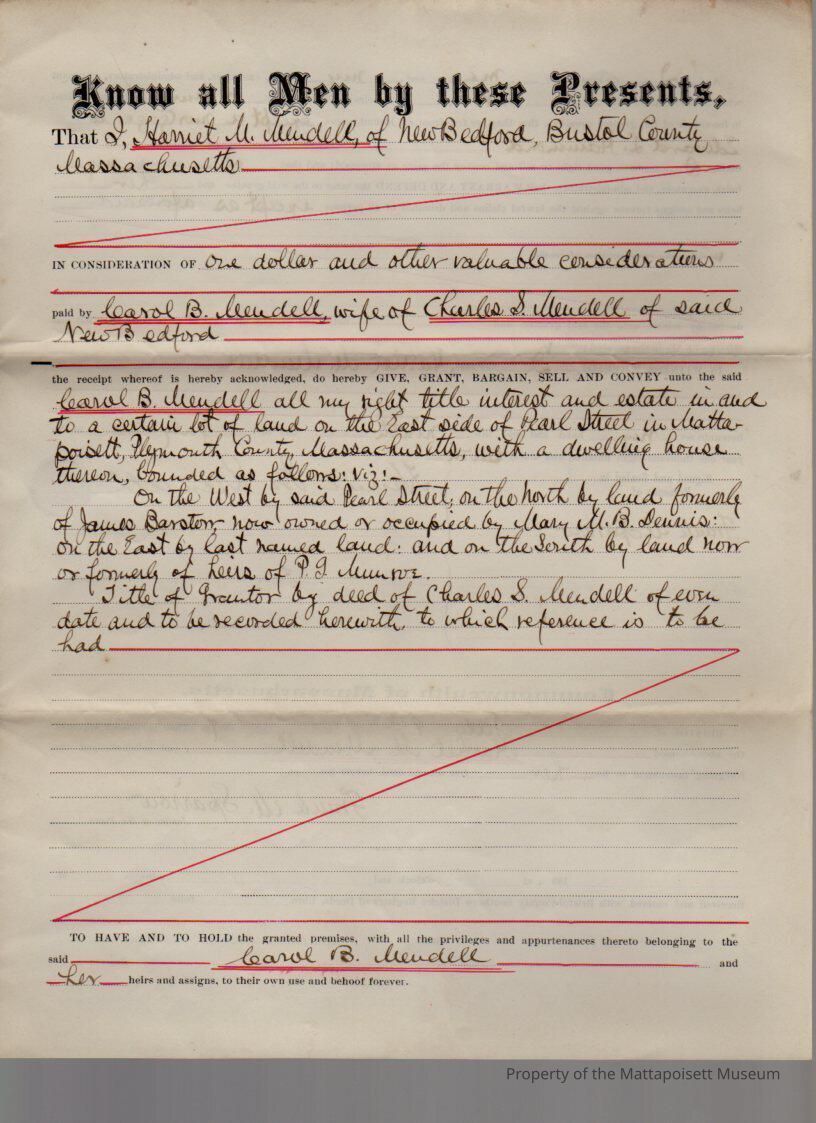 Know all Men by these Presents,
That I, Harriet M. Mendell, of New Bedford, Bristol County
Massachusetts
IN CONSIDERATION OF one dollar and other valuable considerations
paid by Carol B. Mendell, wife of Charles S. Mendell of said
New Bedford
the receipt whereof is hereby acknowledged, do hereby GIVE, GRANT, BARGAIN, SELL AND CONVEY unto the said
Carol B. Mendell all my right title interest and estate in and
to a certain lot of land on the East side of Pearl Street in Matta-
poisett, Plymouth County, Massachusetts, with a dwelling house
thereon, bounded as follows: viz:-
On the West by said Pearl Street; on the North by land formerly
of James Barstow now owned or occupied by Mary M. B. Dennis:
on the East by last named land: and on the South by land now
or formerly of heirs of P. G. Munroe.
Title of Grantor by deed of Charles S. Mendell of even
date and to be recorded herewith, to which reference is to be
had
TO HAVE AND TO HOLD the granted premises, with all the privileges and appurtenances thereto belonging to the
said Carol B. Mendell and
her heirs and assigns, to their own use and behoof forever.
Property of the Mattapoisett Museum